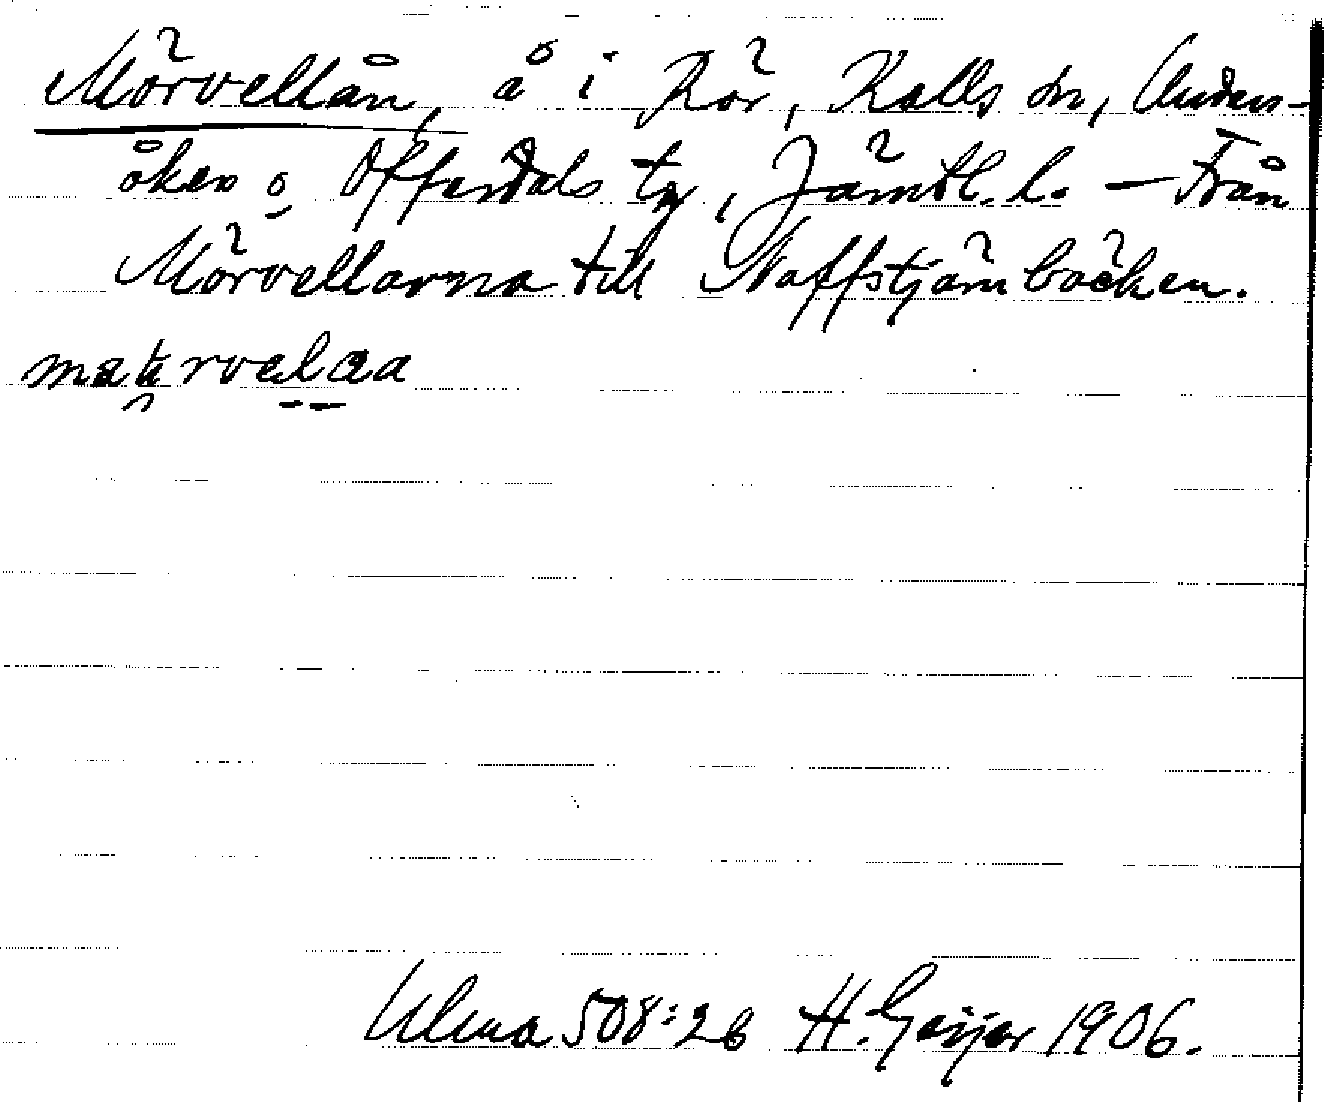 Mörvellån, å i Rör, Kalls sn, Unders-
åkers o Offerdals tg, Jämtl. l. — Från
Mörvellarna till Naffstjärnbäcken.
Ulma 508:2b H. Geijer 1906.